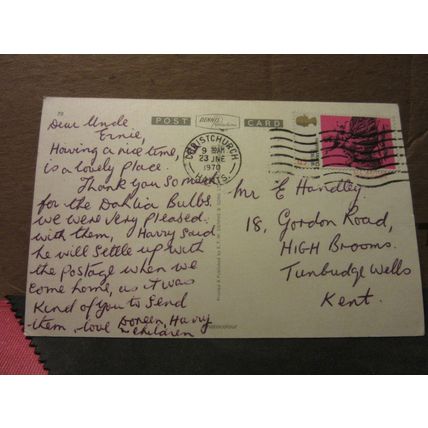 79
POST CARD
DENNIS
Dear Uncle
Ernie,
Having a nice time,
is a lovely place.
Thank you so much
for the Dahlia Bulbs.
we were very pleased
with them, Harry said
he will settle up with
the postage when we
come home, as it was
kind of you to send
them, love Doreen, Harry
& children
CHRISTCHURCH
9 30AM
23 JNE
1970
HANTS.
Mr E Handley.
18, Gordon Road,
HIGH BROOMS.
Tunbridge Wells
Kent.